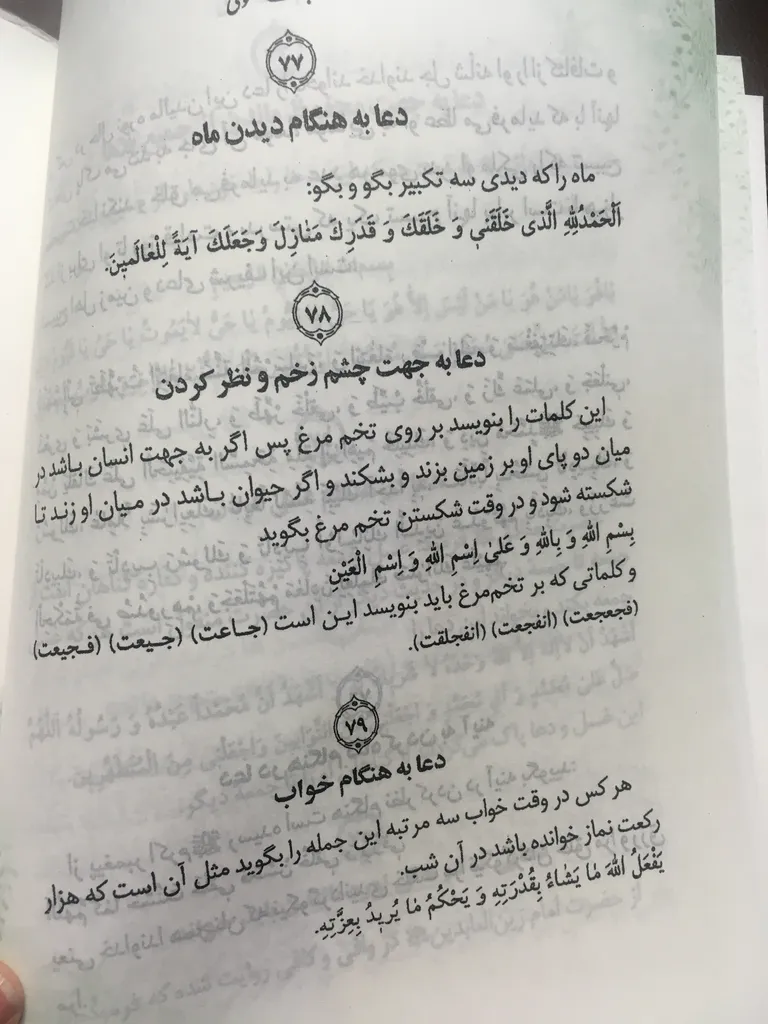 ۷۷
دعا به هنگام دیدن ماه
ماه را که دیدی سه تکبیر بگو و بگو:
اَلْحَمْدُلِلّٰهِ الَّذی خَلَقَنیٖ وَ خَلَقَكَ وَ قَدَرِكَ مَنٰازِلَ وَجَعَلَكَ آيَةً لِلْعٰالَمیٖنَ.
۷۸
دعا به جهت چشم زخم و نظر کردن
این کلمات را بنویسد بر روی تخم مرغ پس اگر به جهت انسان باشد در
میان دو پای او بر زمین بزند و بشکند و اگر حیوان باشد در میان او زند تا
شکسته شود و در وقت شکستن تخم مرغ بگوید
بِسْمِ اللّٰهِ وَ بِاللّٰهِ وَ عَلیٰ اِسْمِ اللّٰهِ وَ اِسْمِ الْعَیْنِ
و کلماتی که بر تخم‌مرغ باید بنویسد این است (جاعت) (جیعت) (فجیعت)
(فجعجعت) (انفجعت) (انفجلقت).
۷۹
دعا به هنگام خواب
هر کس در وقت خواب سه مرتبه این جمله را بگوید مثل آن است که هزار
رکعت نماز خوانده باشد در آن شب.
یَفْعَلُ اللّٰهَ مٰا یَشٰاءُ بِقُدْرَتِهِ وَ یَحْکُمُ مٰا یُریٖدُ بِعِزَّتِهِ.